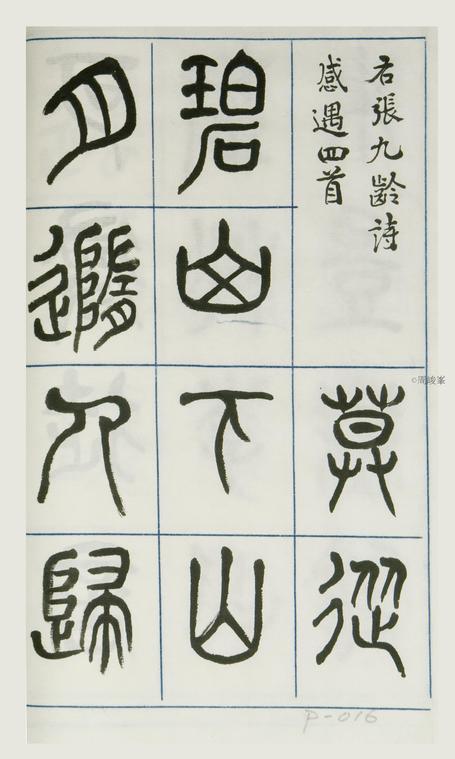 右張九齡詩
感遇四首
莫從
碧山下山
月隨人歸
©周峻峯
P-016